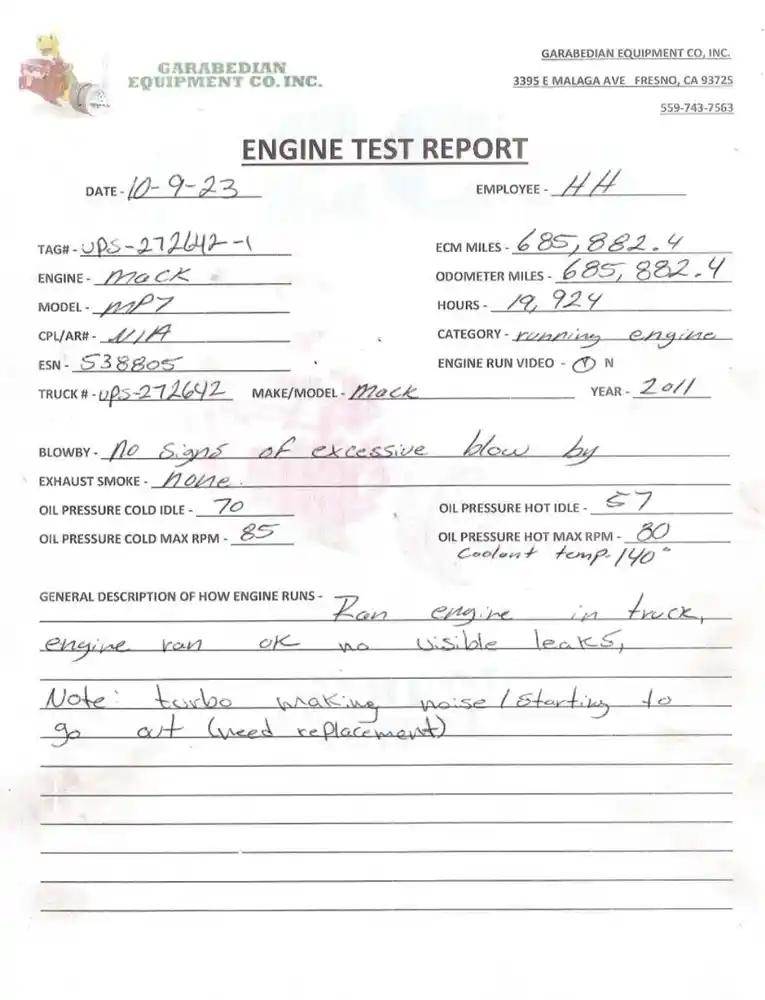 GARABEDIAN
EQUIPMENT CO. INC.
GARABEDIAN EQUIPMENT CO, INC.
3395 E MALAGA AVE FRESNO, CA 93725
559-743-7563
ENGINE TEST REPORT
DATE - 10-9-23 EMPLOYEE - HH
TAG# - UPS-272642-1 ECM MILES - 685,882.4
ENGINE - Mack ODOMETER MILES - 685,882.4
MODEL - MP7 HOURS - 19,924
CPL/AR# - N/A CATEGORY - running engine
ESN - 538805 ENGINE RUN VIDEO - Y N
TRUCK # - UPS-272642 MAKE/MODEL - Mack YEAR - 2011
BLOWBY - No signs of excessive blow by
EXHAUST SMOKE - none.
OIL PRESSURE COLD IDLE - 70 OIL PRESSURE HOT IDLE - 57
OIL PRESSURE COLD MAX RPM - 85 OIL PRESSURE HOT MAX RPM - 80
Coolant temp. 140°
GENERAL DESCRIPTION OF HOW ENGINE RUNS - Ran engine in truck,
engine ran ok no visible leaks,
Note: turbo making noise / Starting to
go out (need replacement)